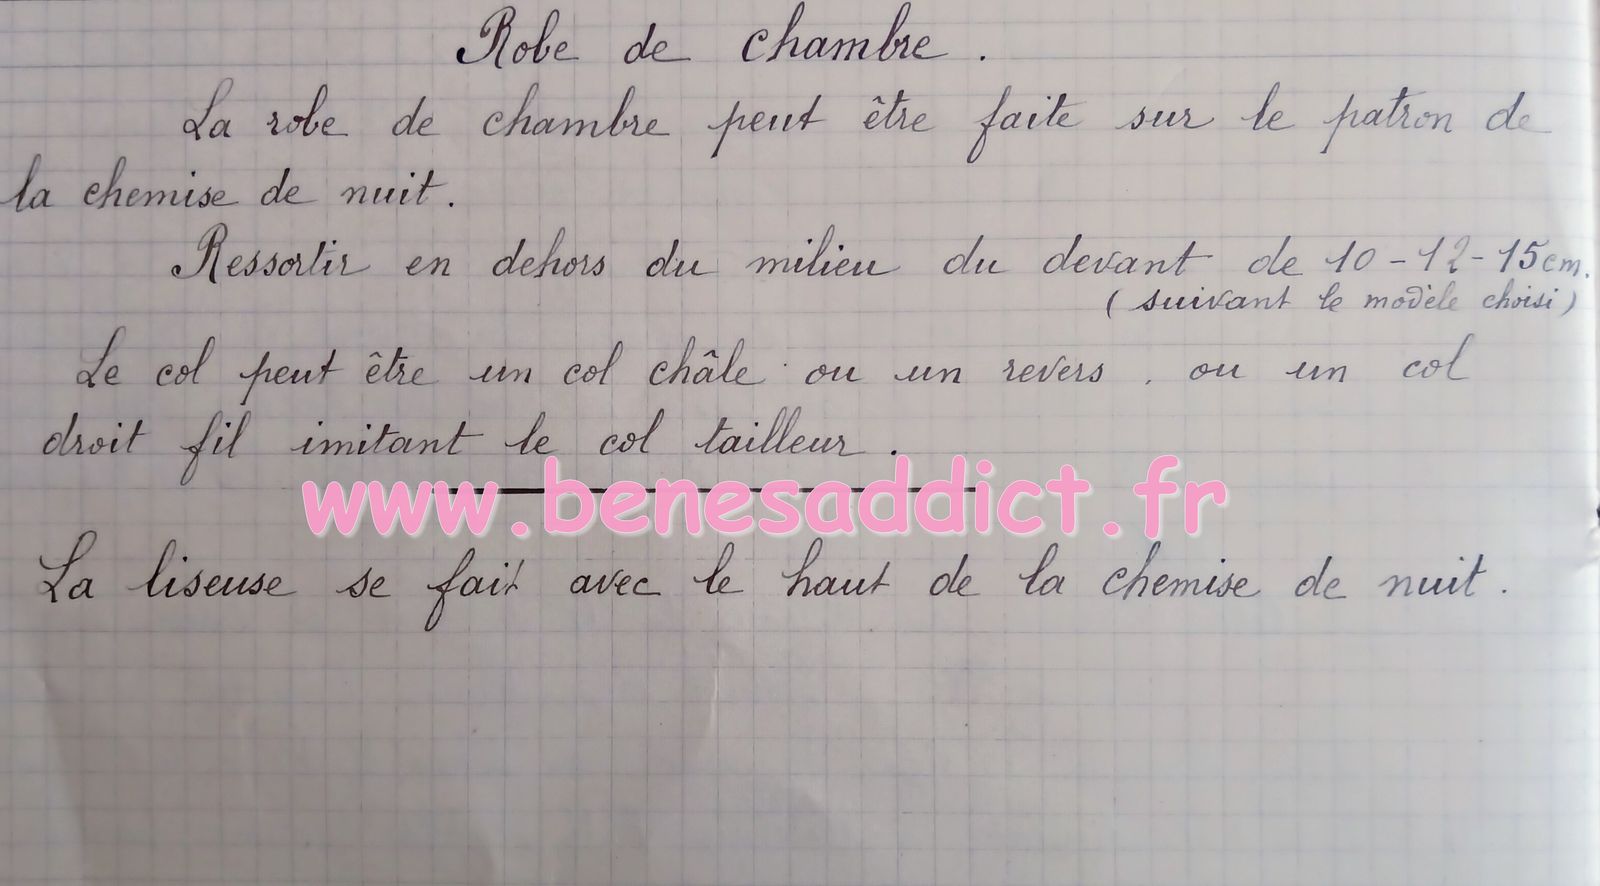 Robe de chambre.
La robe de chambre peut être faite sur le patron de
la chemise de nuit.
Ressortir en dehors du milieu du devant de 10-12-15cm.
(suivant le modèle choisi)
Le col peut être un col châle ou un revers, ou un col
droit fil imitant le col tailleur.
www.benesaddict.fr
La liseuse se fait avec le haut de la chemise de nuit.